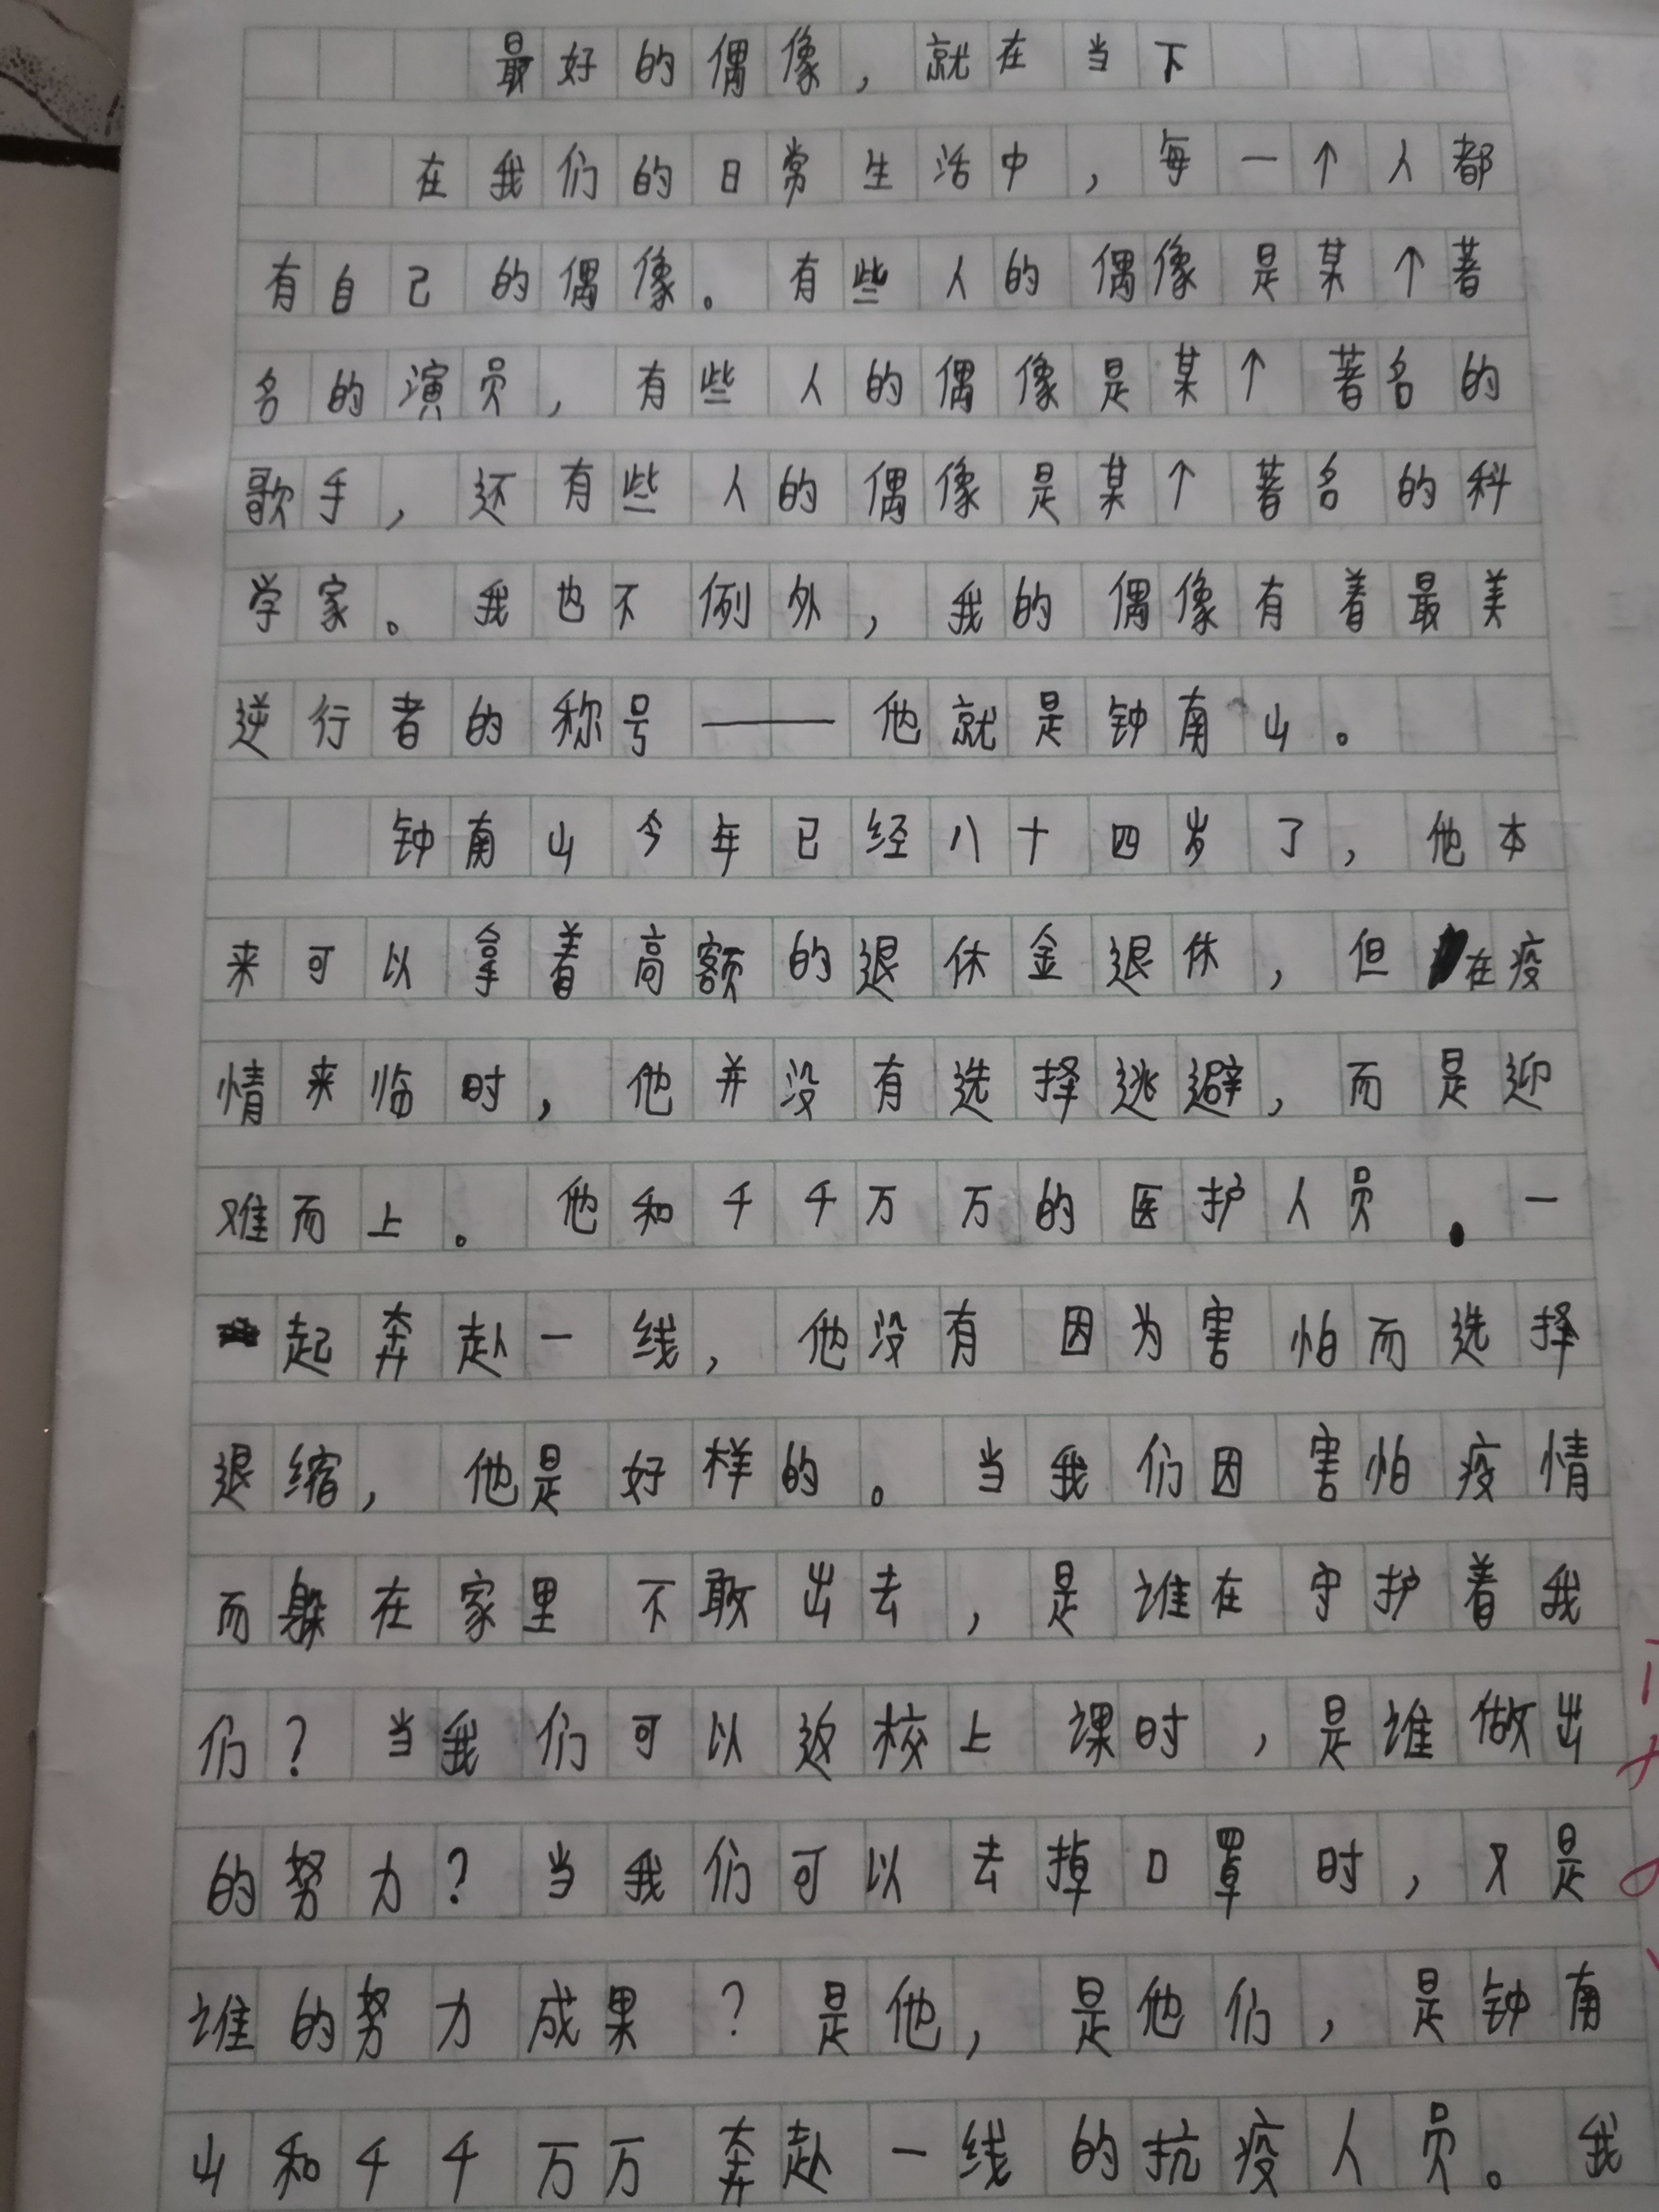 最好的偶像，就在当下
在我们的日常生活中，每一个人都
有自己的偶像。有些人的偶像是某个著
名的演员，有些人的偶像是某个著名的
歌手，还有些人的偶像是某个著名的科
学家。我也不例外，我的偶像有着最美
逆行者的称号——他就是钟南山。
钟南山今年已经八十四岁了，他本
来可以拿着高额的退休金退休，但在疫
情来临时，他并没有选择逃避，而是迎
难而上。他和千千万万的医护人员一
起奔赴一线，他没有因为害怕而选择
退缩，他是好样的。当我们因害怕疫情
而躲在家里不敢出去，是谁在守护着我
们？当我们可以返校上课时，是谁做出
的努力？当我们可以去掉口罩时，又是
谁的努力成果？是他，是他们，是钟南
山和千千万万奔赴一线的抗疫人员。我